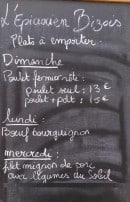 L'Epicurien Bizois
Plats à emporter:
Dimanche
Poulet fermier rôti:
poulet seul: 13€
poulet + pdt: 15€
lundi:
Bœuf bourguignon
mercredi:
filet mignon de porc
aux légumes du Soleil